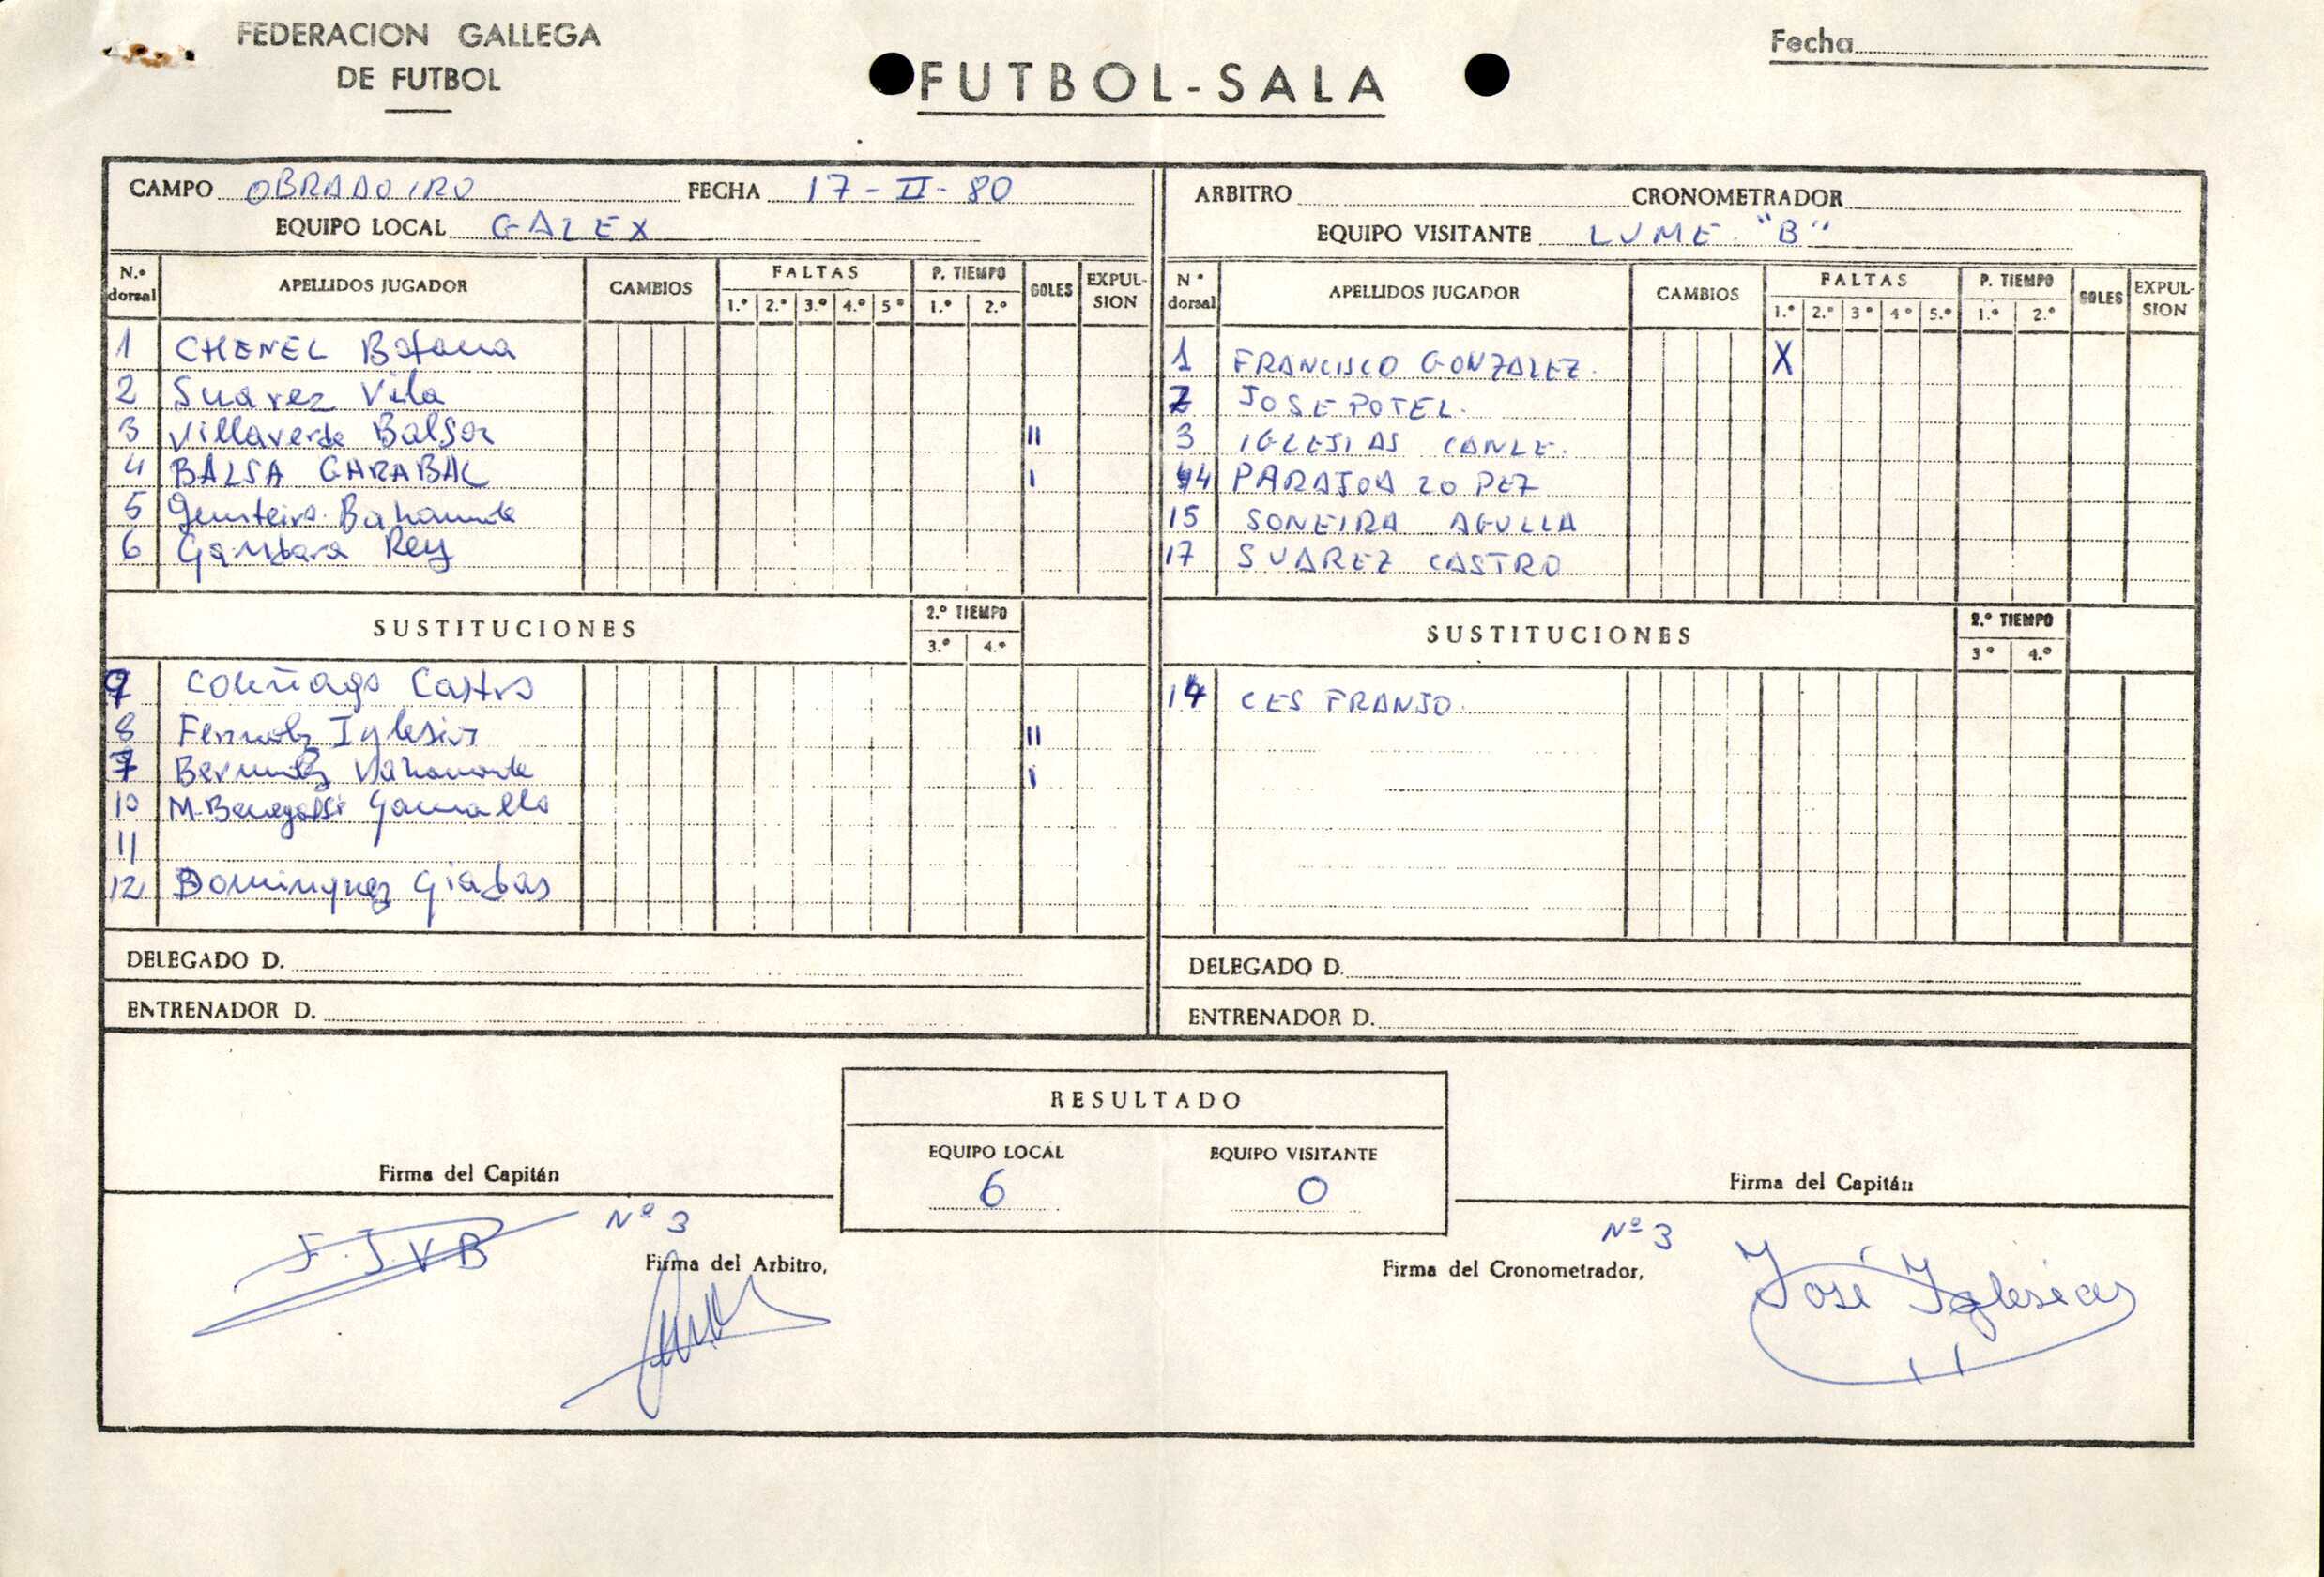 FEDERACION GALLEGA
DE FUTBOL
FUTBOL-SALA
Fecha
CAMPO OBRADOIRO FECHA 17-II-80
EQUIPO LOCAL GALEX
N.º dorsal APELLIDOS JUGADOR CAMBIOS FALTAS 1.º 2.º 3.º 4.º 5º P. TIEMPO 1.º 2.º GOLES EXPULSION
1 CHENEL
2 Suarez Vila
3 Villaverde Balsa II
4 BALSA CARABAL I
5 Bahamonde
6 Gandara Rey
SUSTITUCIONES 2.º TIEMPO 3.º 4.º
9 Castro
8 Iglesias II
7 I
10
11
12 Dominguez
DELEGADO D.
ENTRENADOR D.
ARBITRO CRONOMETRADOR
EQUIPO VISITANTE LUME "B"
Nº dorsal APELLIDOS JUGADOR CAMBIOS FALTAS 1.º 2.º 3º 4º 5.º P. TIEMPO 1.º 2.º GOLES EXPULSION
1 FRANCISCO GONZALEZ. X
2 JOSE POTEL.
3 IGLESIAS CANLE.
PARAJOA LOPEZ
15 SONEIRA AGULLA
17 SUAREZ CASTRO
SUSTITUCIONES 2.º TIEMPO 3º 4.º
14 CES FRANJO.
DELEGADO D.
ENTRENADOR D.
RESULTADO
EQUIPO LOCAL EQUIPO VISITANTE
6 0
Firma del Capitán
Nº 3
F.J.V.B
Firma del Arbitro,
Firma del Capitán
Nº 3
Firma del Cronometrador,
José Iglesias